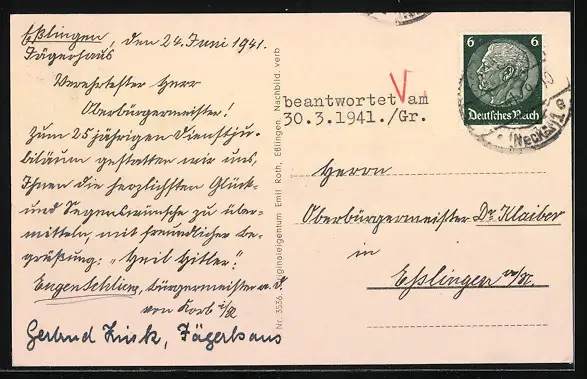 Eßlingen, den 24. Juni 1941.
Jägerhaus
Verehrtester Herr
Oberbürgermeister!
Zum 25 jährigen Dienstju-
biläum gestatten wir uns,
Ihnen die herzlichsten Glück-
und Segenswünsche zu über-
mitteln, mit freundlicher Be-
grüßung: „Heil Hitler“!
Eugen Bürgermeister a. D.
von Korb
Gertrud Jägerhaus
Nr. 3536. Originaleigentum Emil Roth, Eßlingen. Nachbild. verb
beantwortet am
30.3.1941./Gr.
6 6
Deutsches Reich
(Neckar) 1
Herrn
Oberbürgermeister Dr. Klaiber
in
Eßlingen a/N.